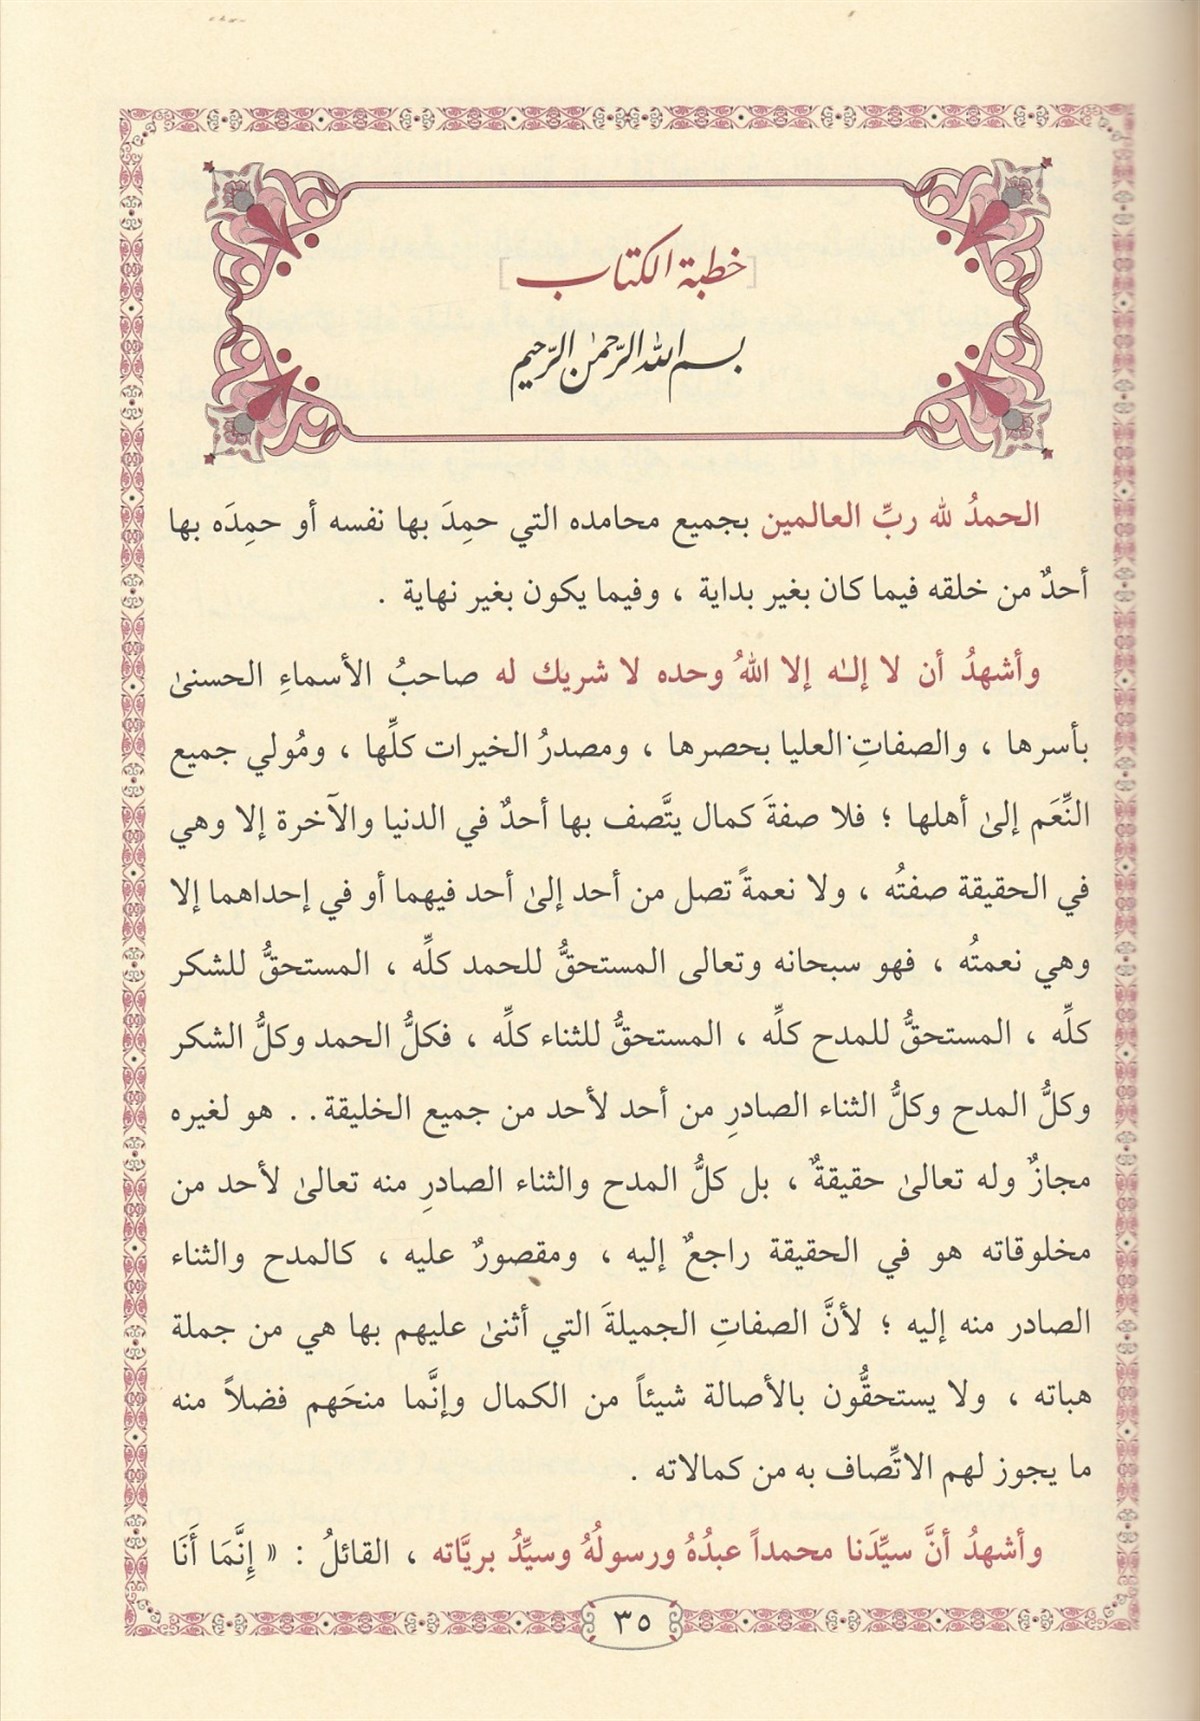 [خطبة الكتاب]
بسم الله الرّحمٰن الرّحيم
الحمدُ لله ربِّ العالمين بجميع محامده التي حمِدَ بها نفسه أو حمِدَه بها
أحدٌ من خلقه فيما كان بغير بداية ، وفيما يكون بغير نهاية .
وأشهدُ أن لا إلـٰه إلا اللهُ وحده لا شريك له صاحبُ الأسماءِ الحسنىٰ
بأسرها ، والصفاتِ العليا بحصرها ، ومصدرُ الخيرات كلِّها ، ومُولي جميع
النِّعَم إلىٰ أهلها ؛ فلا صفةَ كمال يتَّصف بها أحدٌ في الدنيا والآخرة إلا وهي
في الحقيقة صفتُه ، ولا نعمةً تصل من أحد إلىٰ أحد فيهما أو في إحداهما إلا
وهي نعمتُه ، فهو سبحانه وتعالى المستحقُّ للحمد كلِّه ، المستحقُّ للشكر
كلِّه ، المستحقُّ للمدح كلِّه ، المستحقُّ للثناء كلِّه ، فكلُّ الحمد وكلُّ الشكر
وكلُّ المدح وكلُّ الثناء الصادرِ من أحد لأحد من جميع الخليقة . . هو لغيره
مجازٌ وله تعالىٰ حقيقةٌ ، بل كلُّ المدح والثناء الصادرِ منه تعالىٰ لأحد من
مخلوقاته هو في الحقيقة راجعٌ إليه ، ومقصورٌ عليه ، كالمدح والثناء
الصادر منه إليه ؛ لأنَّ الصفاتِ الجميلةَ التي أثنىٰ عليهم بها هي من جملة
هباته ، ولا يستحقُّون بالأصالة شيئاً من الكمال وإنَّما منحَهم فضلاً منه
ما يجوز لهم الاتِّصاف به من كمالاته .
وأشهدُ أنَّ سيِّدَنا محمداً عبدُهُ ورسولُهُ وسيِّدُ بريَّاته ، القائلُ : « إِنَّمَا أَنَا
٣٥